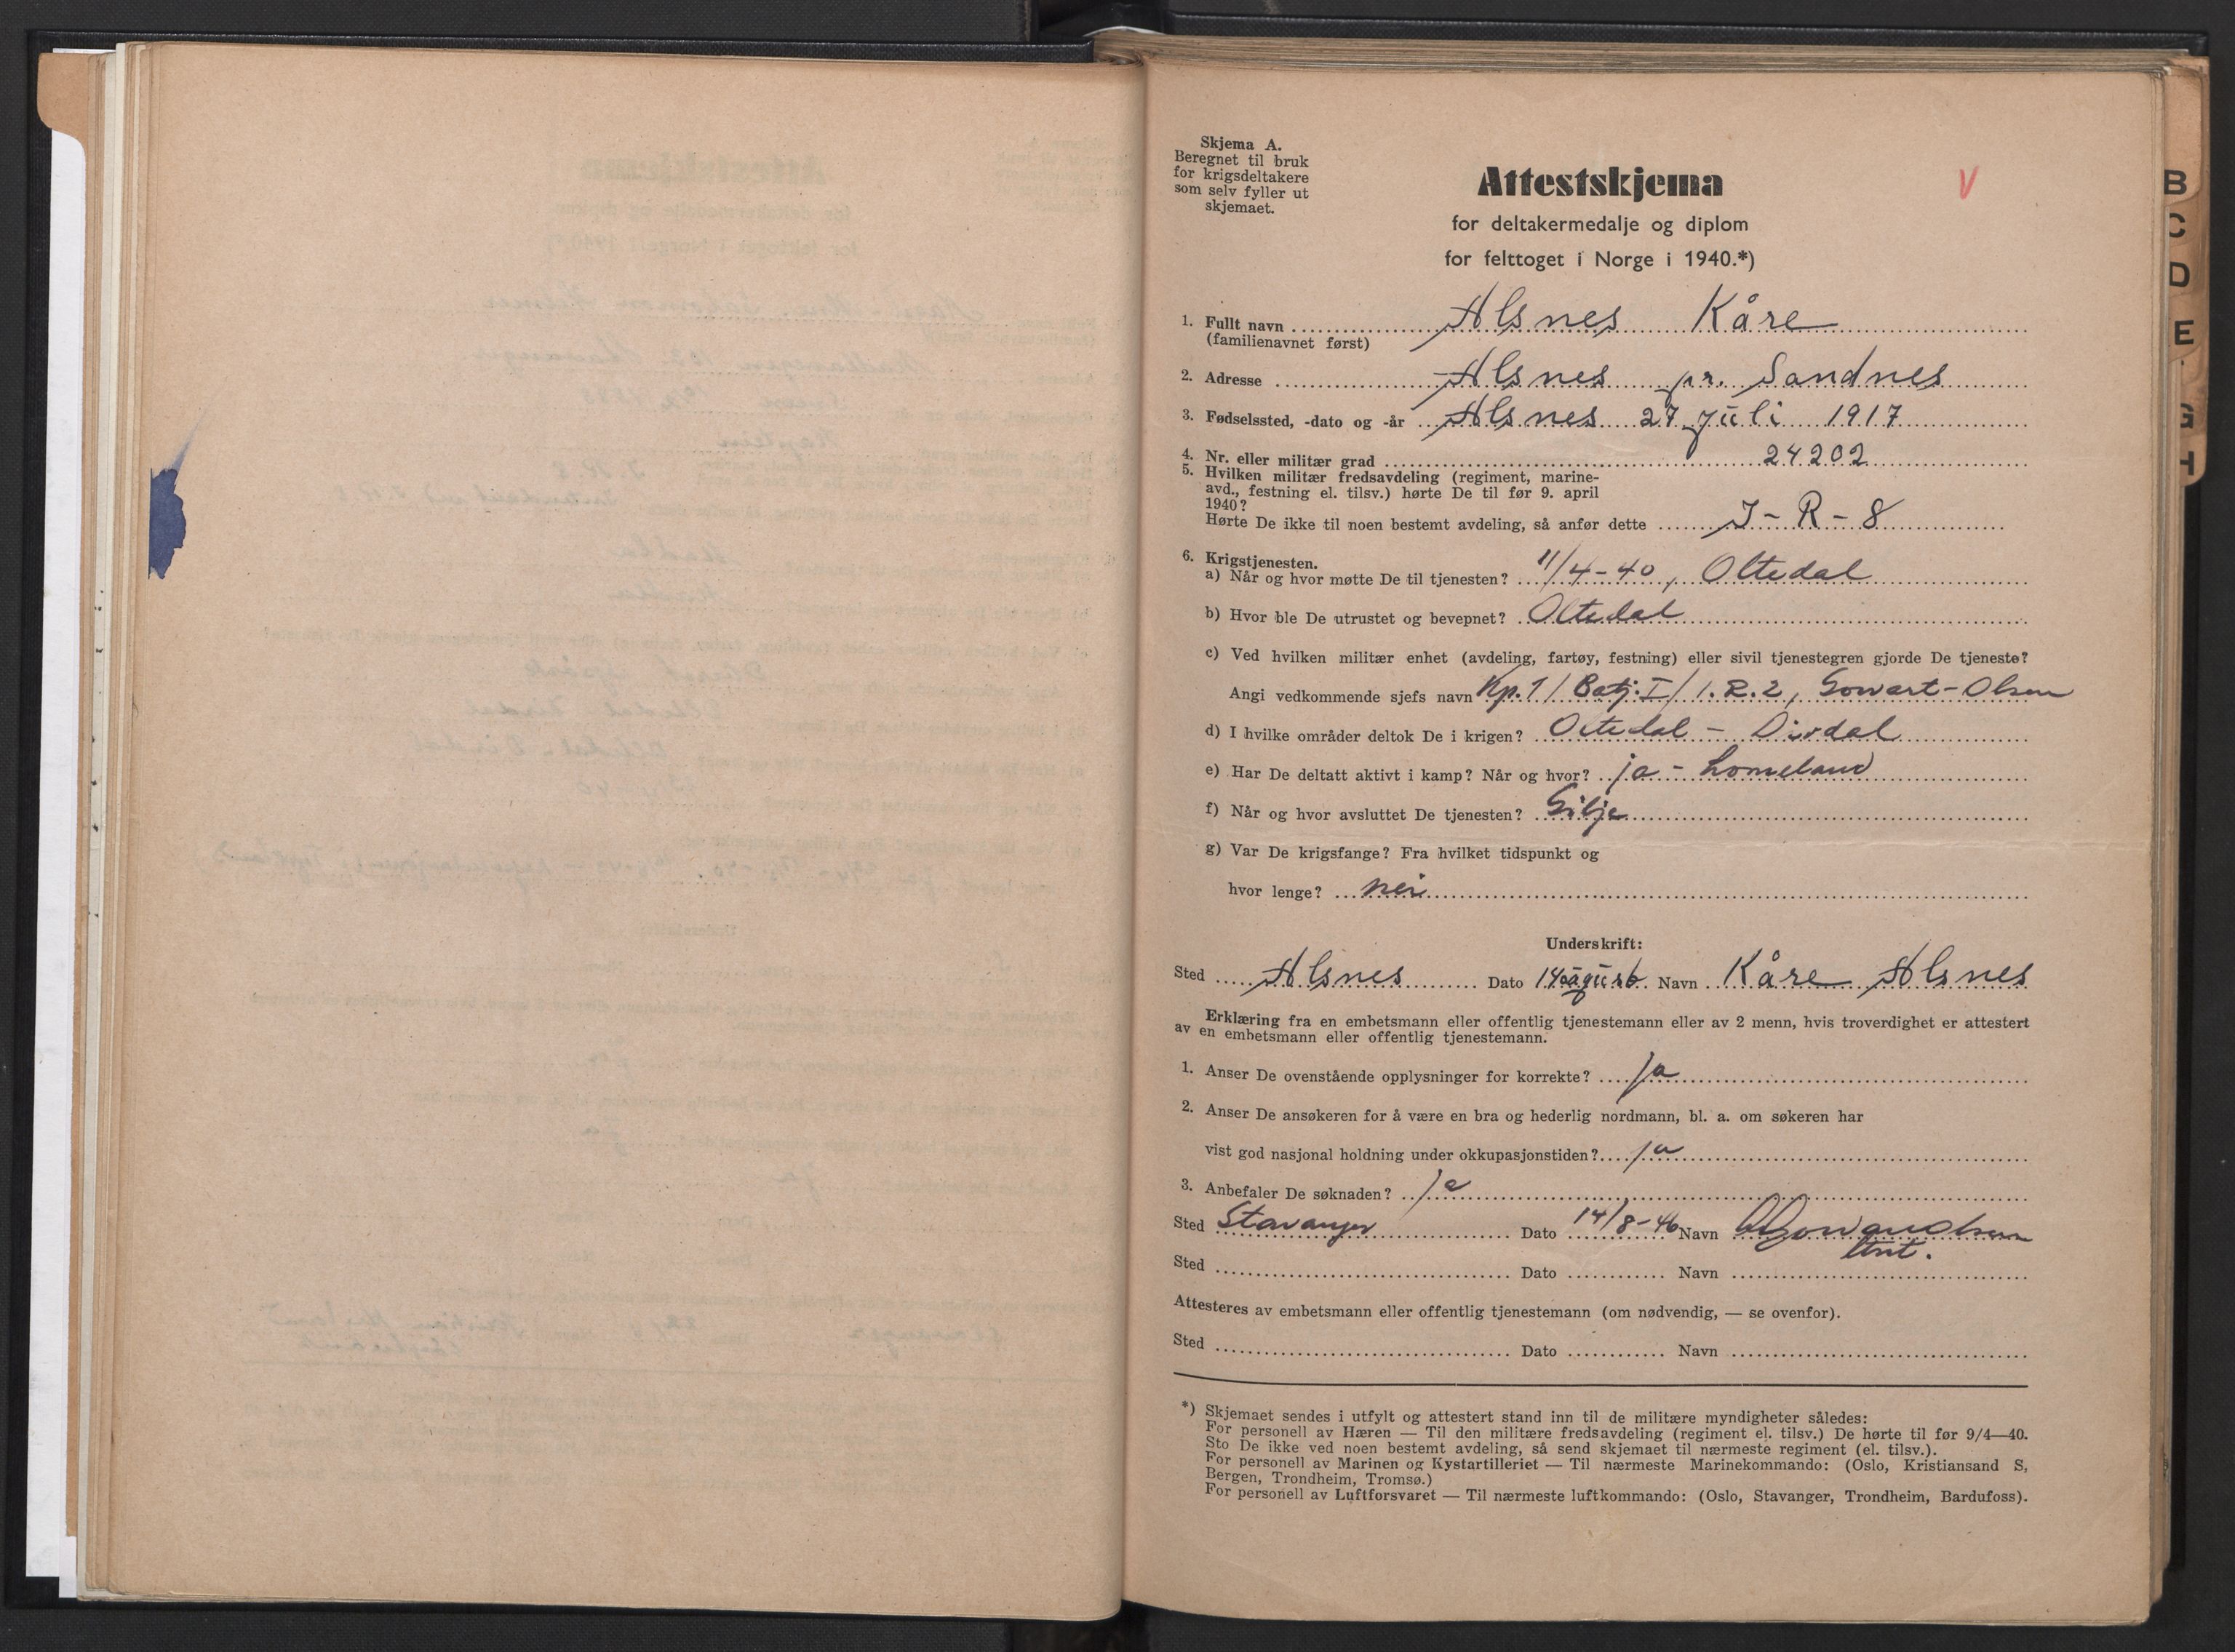 Skjema A.
Beregnet til bruk
for krigsdeltakere
som selv fyller ut
skjemaet.
Attestskjema
V
for deltakermedalje og diplom
for felttoget i Norge i 1940.*)
1. Fullt navn Alsnes Kåre
(familienavnet først)
2. Adresse Alsnes pr. Sandnes
3. Fødselssted, -dato og -år Alsnes 27 juli 1917
4. Nr. eller militær grad 24202
5. Hvilken militær fredsavdeling (regiment, marine-
avd., festning el. tilsv.) hørte De til før 9. april
1940?
Hørte De ikke til noen bestemt avdeling, så anfør dette J-R-8
6. Krigstjenesten.
a) Når og hvor møtte De til tjenesten? 11/4-40, Oltedal
b) Hvor ble De utrustet og bevepnet? Oltedal
c) Ved hvilken militær enhet (avdeling, fartøy, festning) eller sivil tjenestegren gjorde De tjeneste?
Angi vedkommende sjefs navn Kp.1/Batj.I/I.R.2, Gowart-Olsen
d) I hvilke områder deltok De i krigen? Oltedal - Dirdal
e) Har De deltatt aktivt i kamp? Når og hvor? ja - Lomeland
f) Når og hvor avsluttet De tjenesten? Gilje
g) Var De krigsfange? Fra hvilket tidspunkt og
hvor lenge? nei
Underskrift:
Sted Alsnes Dato 14 august Navn Kåre Alsnes
Erklæring fra en embetsmann eller offentlig tjenestemann eller av 2 menn, hvis troverdighet er attestert
av en embetsmann eller offentlig tjenestemann.
1. Anser De ovenstående opplysninger for korrekte? ja
2. Anser De ansøkeren for å være en bra og hederlig nordmann, bl. a. om søkeren har
vist god nasjonal holdning under okkupasjonstiden? ja
3. Anbefaler De søknaden? ja
Sted Stavanger Dato 14/8-46 Navn
Sted Dato Navn
Attesteres av embetsmann eller offentlig tjenestemann (om nødvendig, — se ovenfor).
Sted Dato Navn
*) Skjemaet sendes i utfylt og attestert stand inn til de militære myndigheter således:
For personell av Hæren — Til den militære fredsavdeling (regiment el. tilsv.) De hørte til før 9/4—40.
Sto De ikke ved noen bestemt avdeling, så send skjemaet til nærmeste regiment (el. tilsv.).
For personell av Marinen og Kystartilleriet — Til nærmeste Marinekommando: (Oslo, Kristiansand S,
Bergen, Trondheim, Tromsø.)
For personell av Luftforsvaret — Til nærmeste luftkommando: (Oslo, Stavanger, Trondheim, Bardufoss).
B
C
D
E
G
H